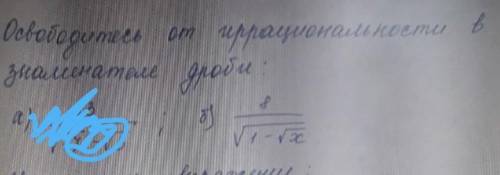 Освободитесь от иррациональности в
знаменателе дроби:
а) ; б) 8/√(1-√x)